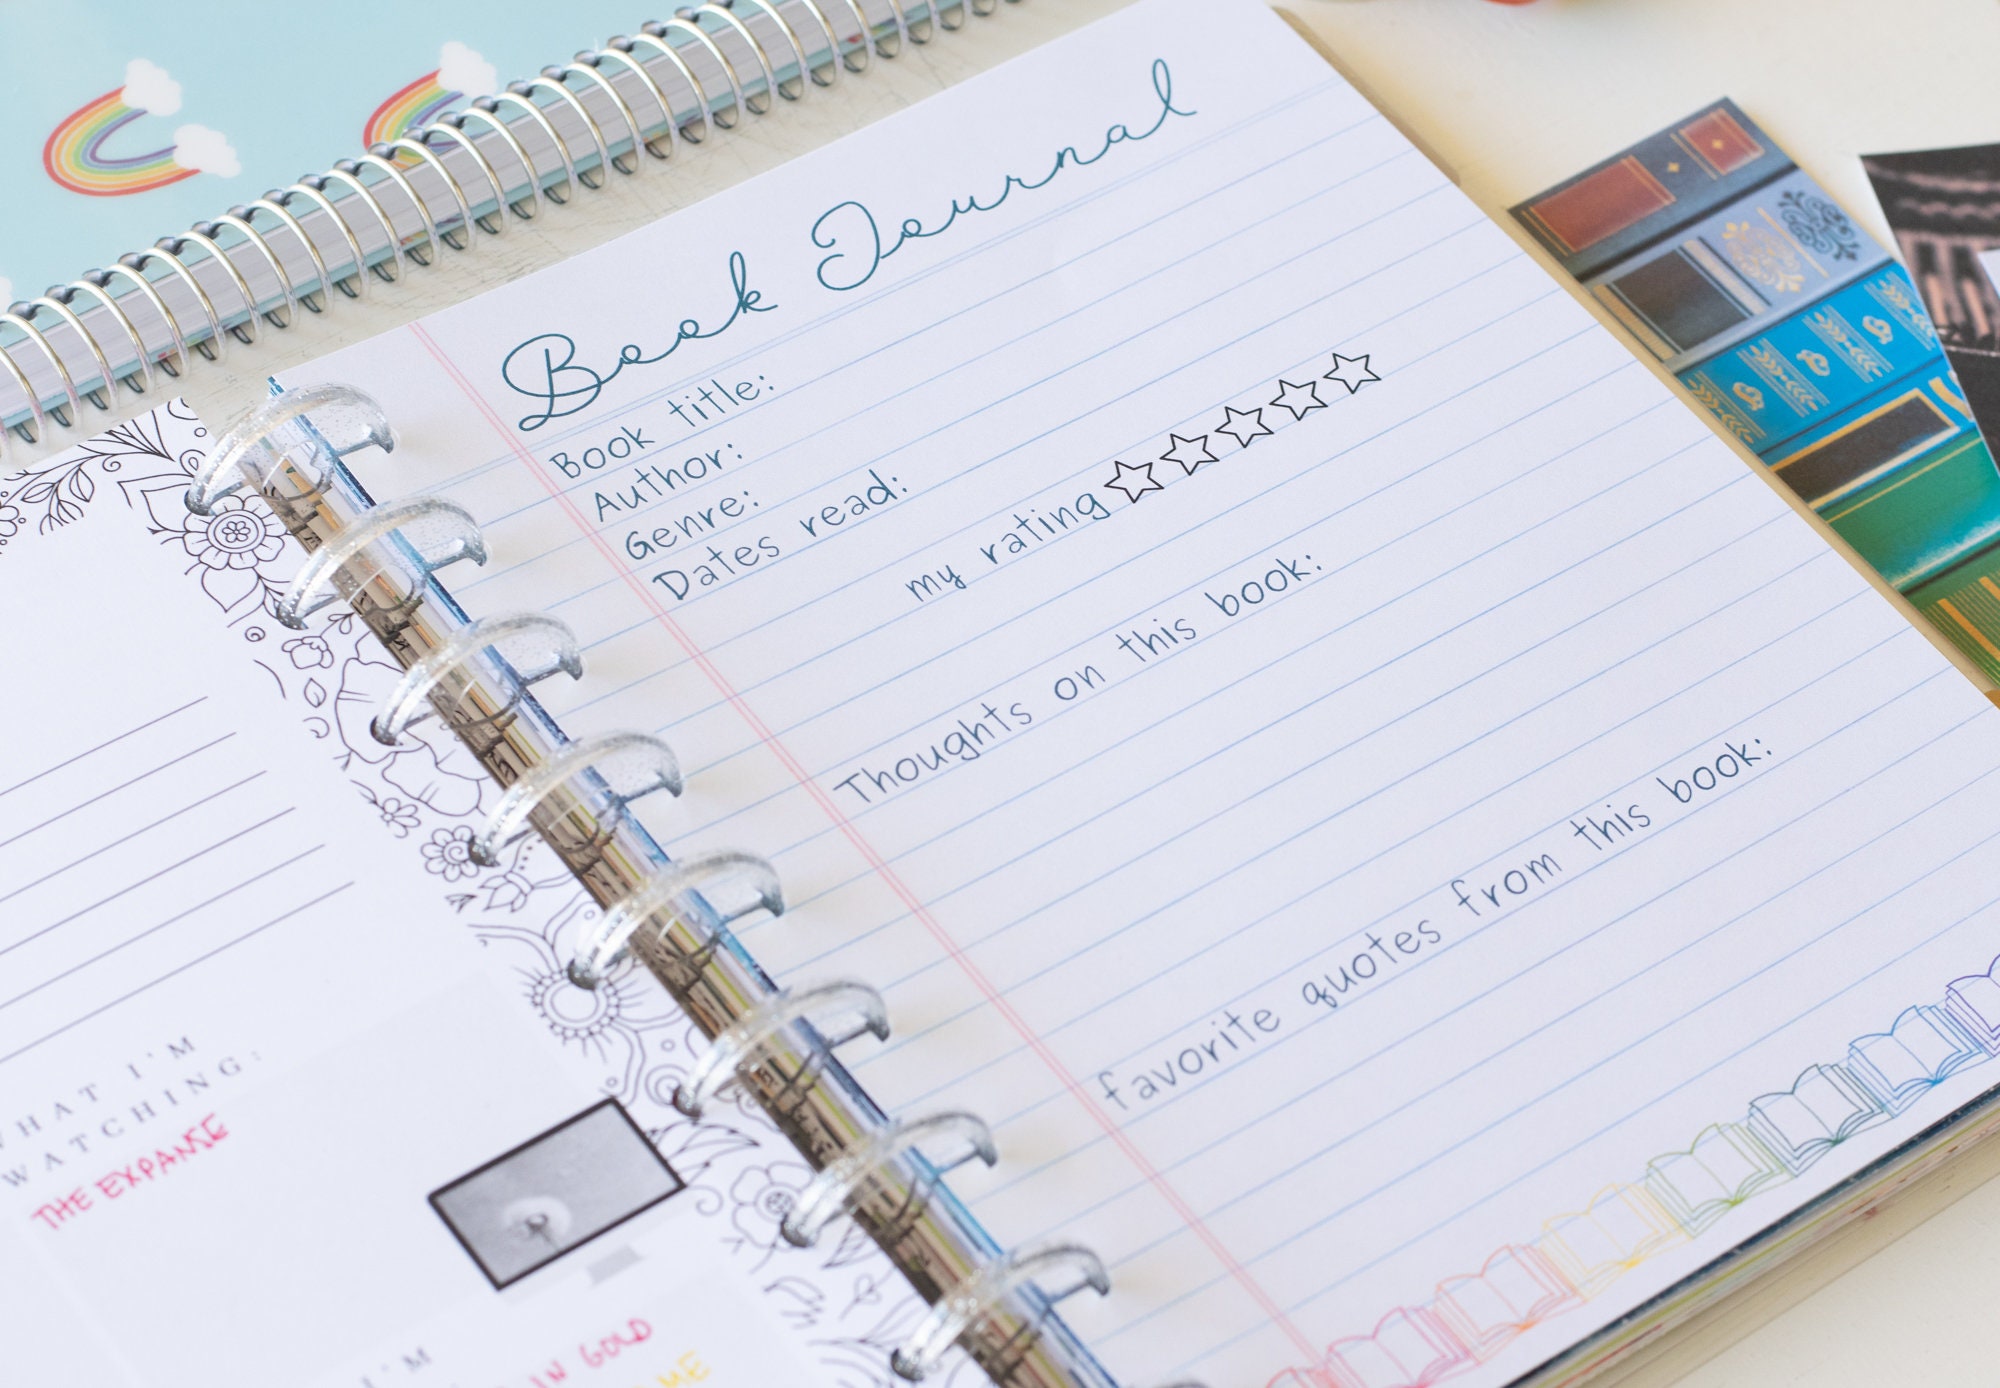 Book Journal
Book title:
Author:
Genre:
Dates read:
my rating
Thoughts on this book:
favorite quotes from this book:
WHAT I'M
WATCHING:
THE EXPANSE
I'M
IN GOLD
ME